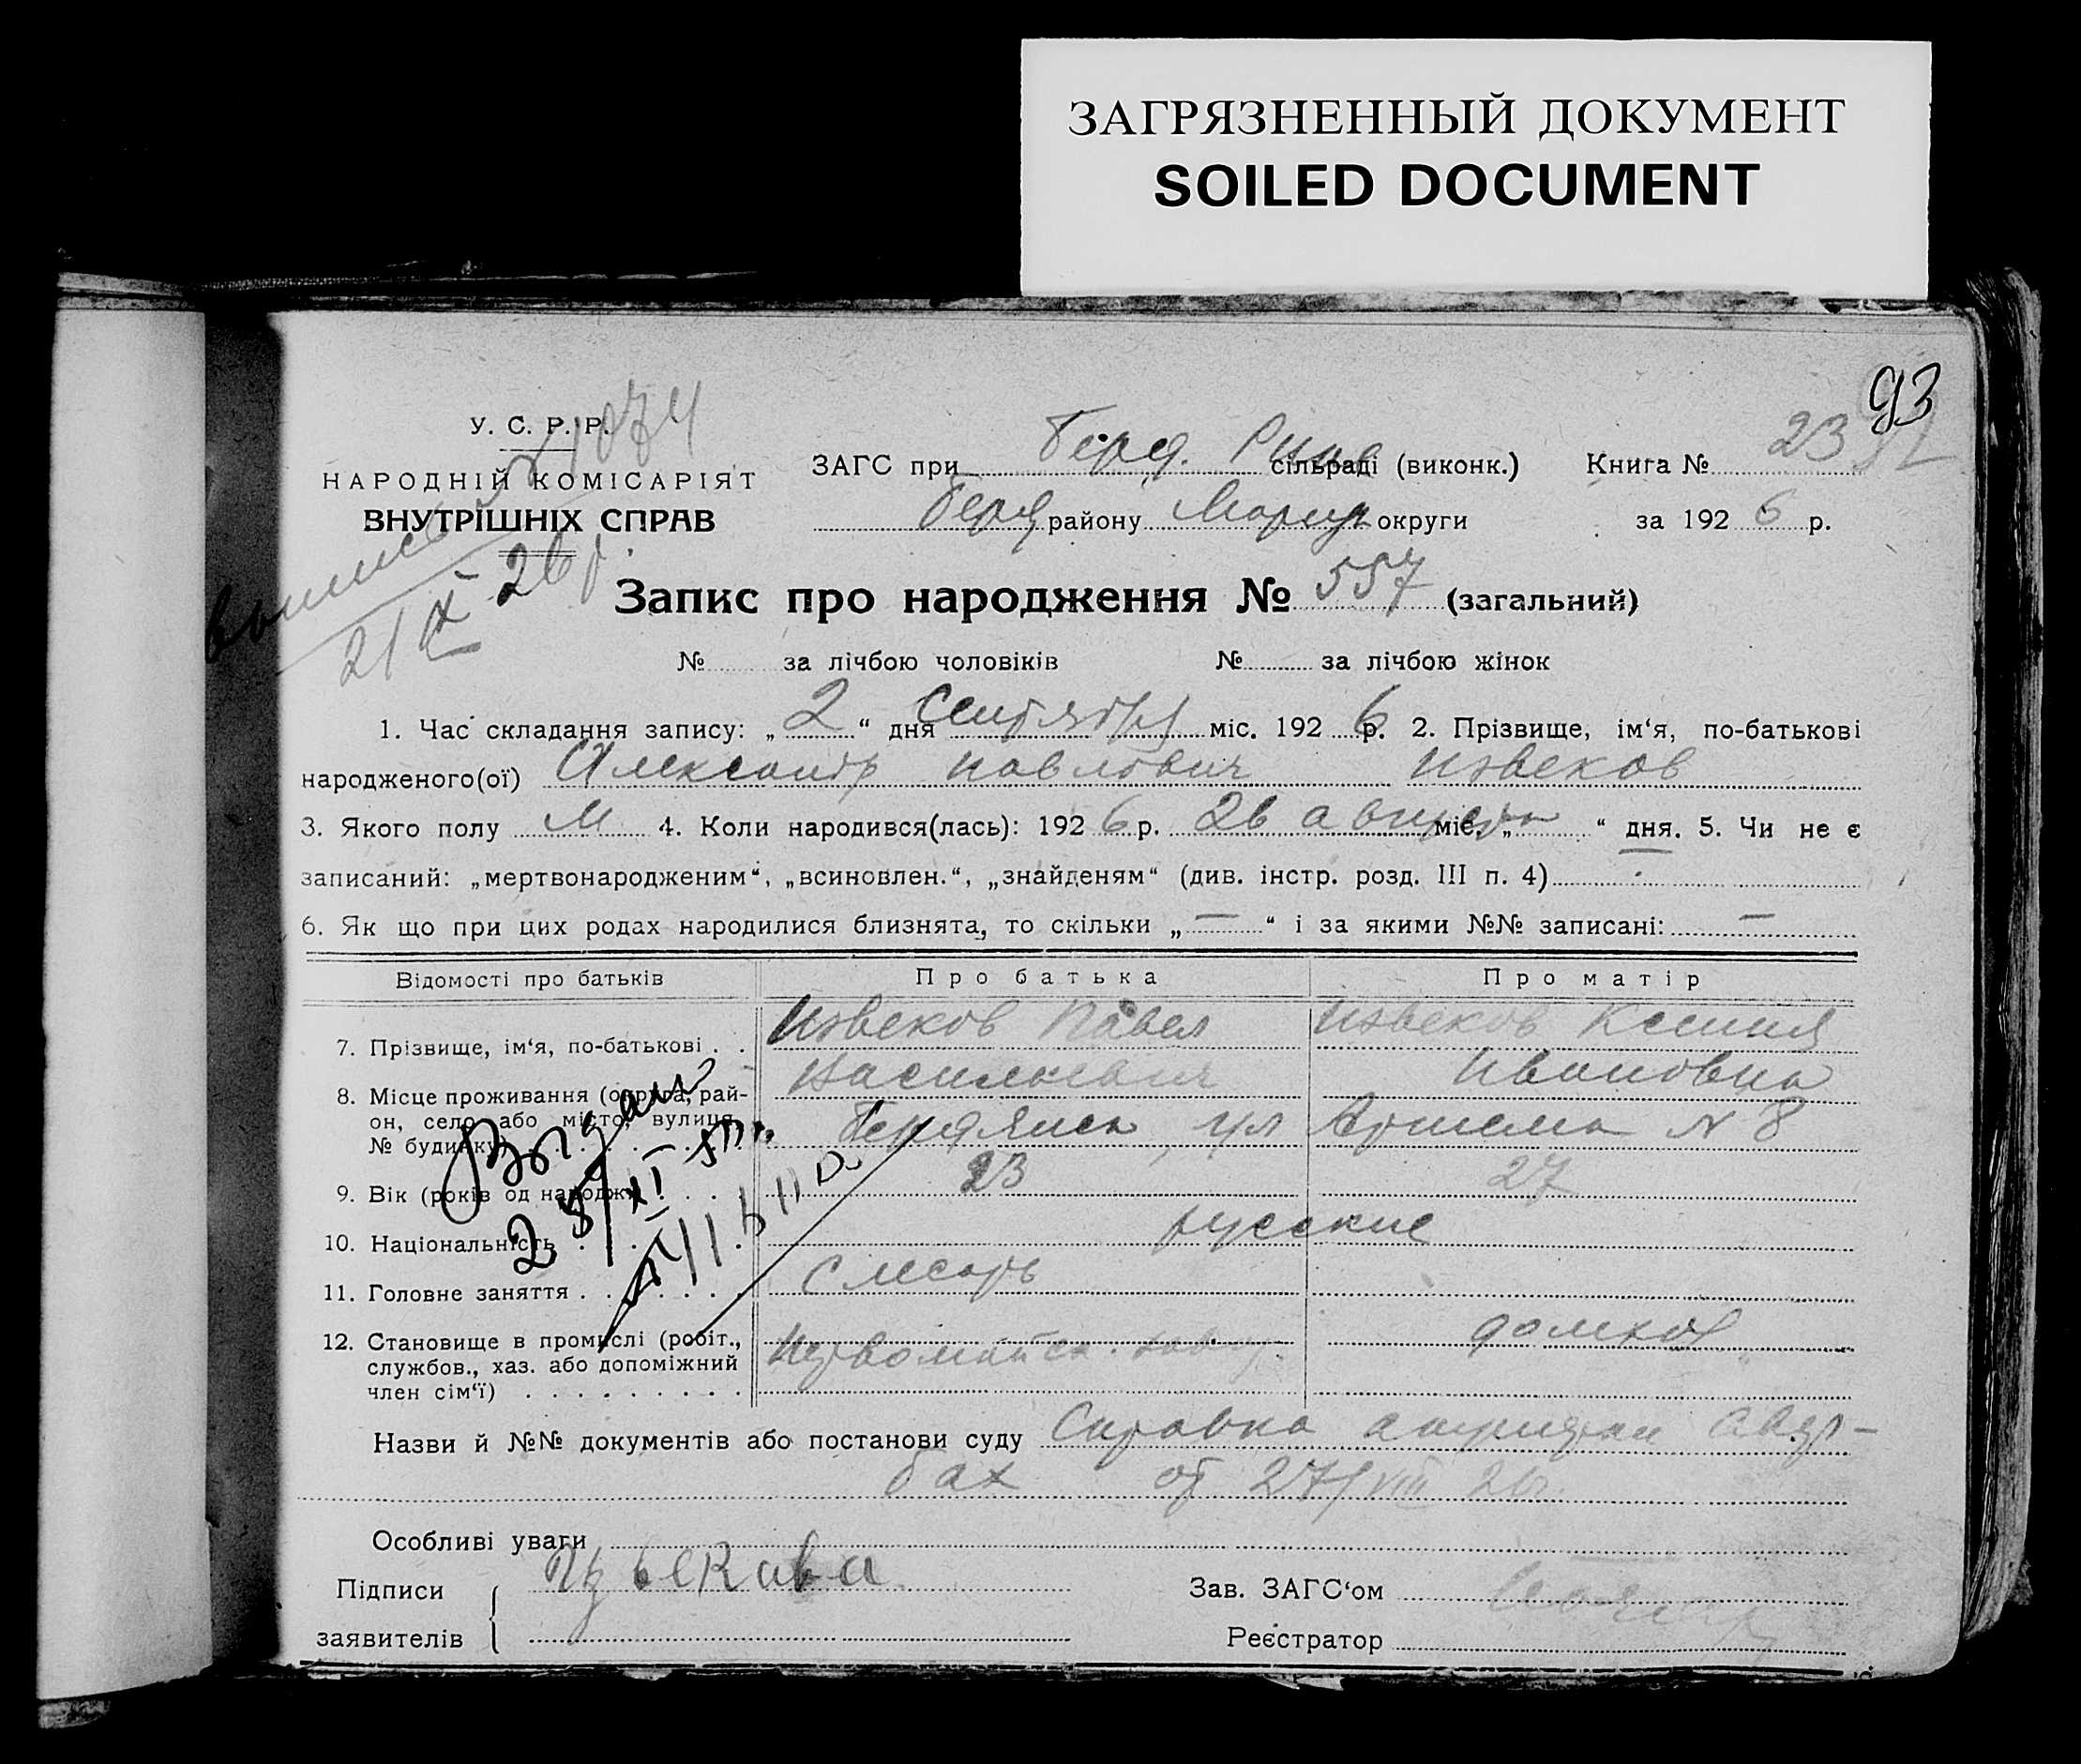 ЗАГРЯЗНЕННЫЙ ДОКУМЕНТ
SOILED DOCUMENT
93
У. С. Р. Р.
НАРОДНІЙ КОМІСАРІЯТ
ВНУТРІШНІХ СПРАВ
ЗАГС при Берд. сільраді (виконк.) Книга № 23
Берд району Мариуп округи за 1926 р.
21/X 26 р.
Запис про народження № 557 (загальний)
№ за лічбою чоловіків № за лічбою жінок
1. Час складання запису: „2“ дня Сентября міс. 1926 р. 2. Прізвище, ім‘я, по-батькові
народженого(ої) Александр Павлович Извеков
3. Якого полу М 4. Коли народився(лась): 1926 р. 26 августа міс. „ “ дня. 5. Чи не є
записаний: „мертвонародженим“, „всиновлен.“, „знайденям“ (див. інстр. розд. III п. 4) —
6. Як що при цих родах народилися близнята, то скільки „—“ і за якими №№ записані: —
Відомості про батьків Про батька Про матір
7. Прізвище, ім‘я, по-батькові . . Извеков Павел Извеков Ксения
Васильевич Ивановна
8. Місце проживання (округа, рай-
он, село або місто, вулиця,
№ будинку) Бердянск, ул Артема N 8
9. Вік (років од народж.) 23 27
10. Національність русские
11. Головне заняття Слесарь
12. Становище в промислі (робіт.,
службов., хаз. або допоміжний
член сім‘ї) Первомайск. завод. домхоз
Назви й №№ документів або постанови суду Справка
от 27/VIII 26г.
Особливі уваги
Підписи Изъекава
заявителів
Зав. ЗАГС‘ом
Реєстратор